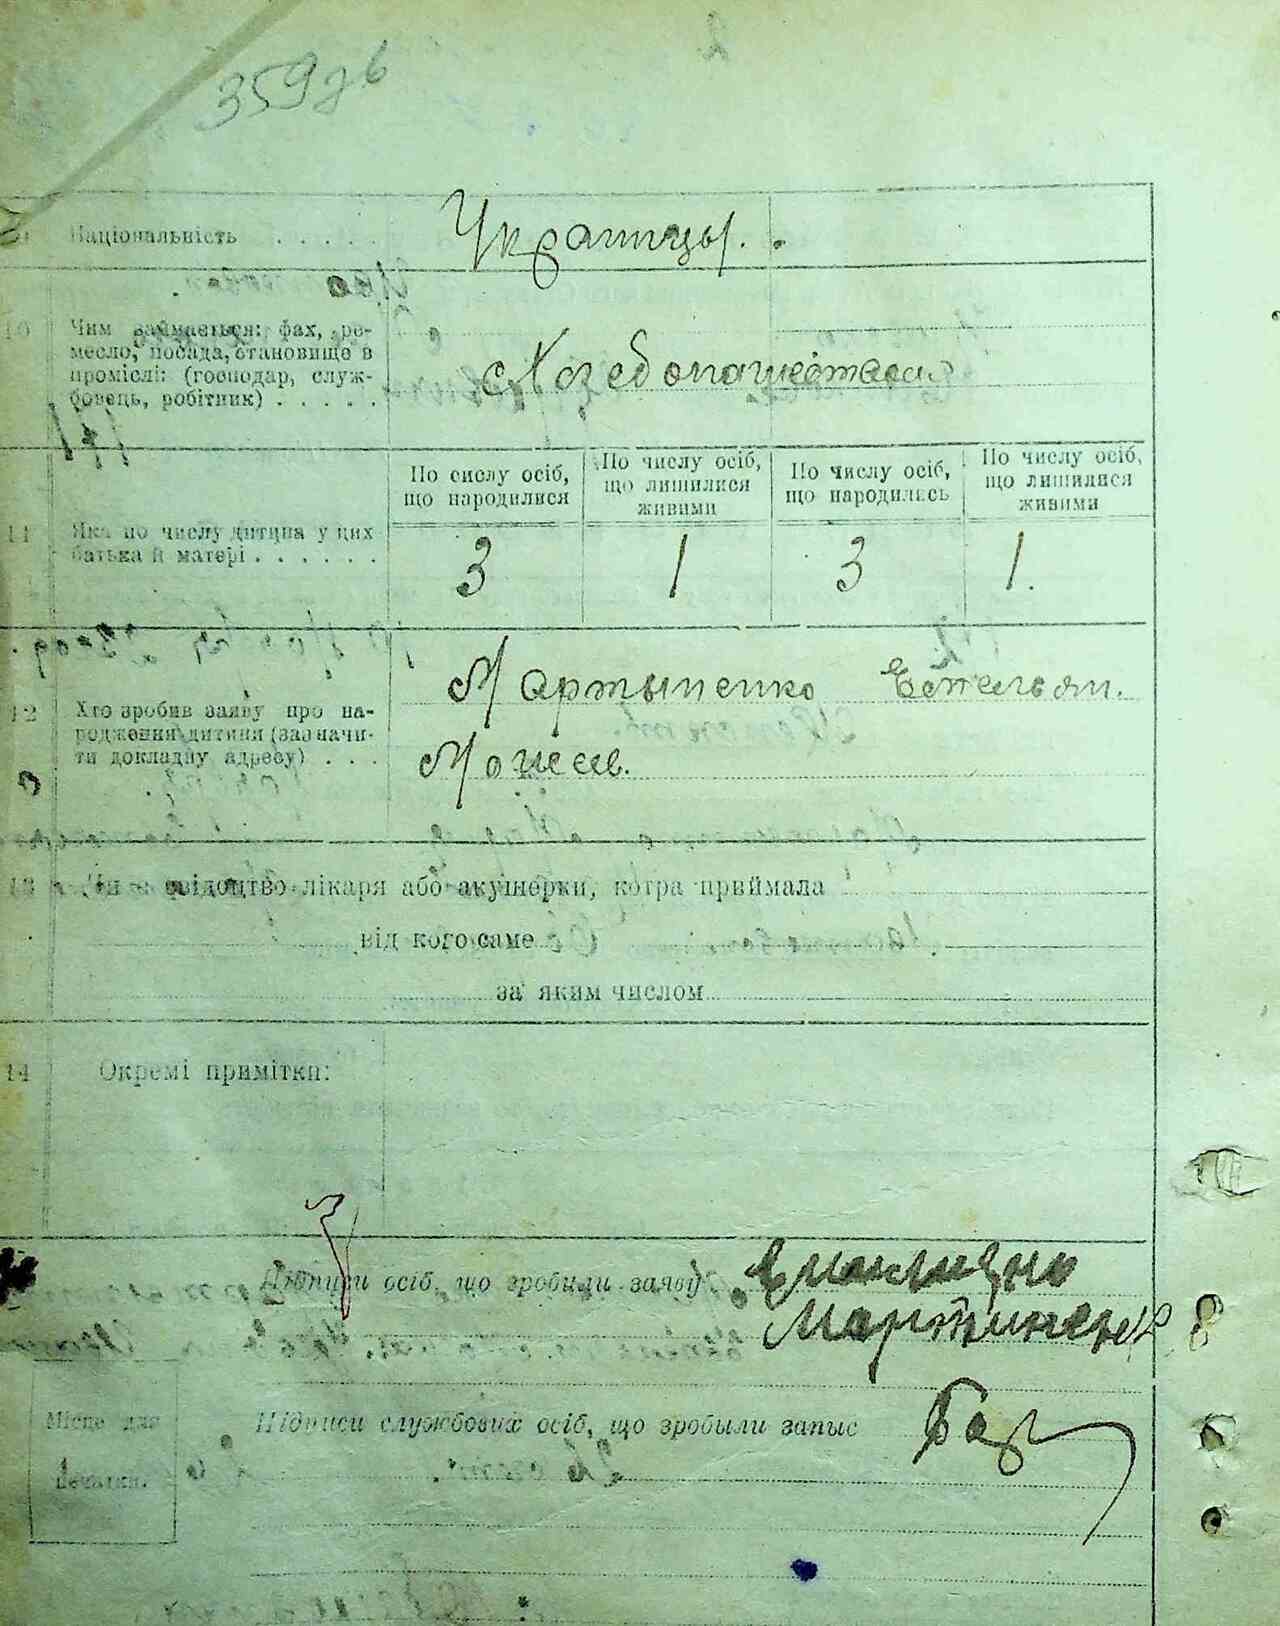 359
Національність . . . . .
Украинцы.
10 Чим займається: фах, ре-
месло, посада, становище в
промислі: (господар, служ-
бовець, робітник) . . . . .
Хлебопашество
По числу осіб, що народилися
По числу осіб, що лишилися живими
По числу осіб, що народились
По числу осіб, що лишилися живими
11 Яка по числу дитина у цих
батька й матері . . . . . .
3 1 3 1.
12 Хто зробив заяву про на-
родження дитини (зазначи-
ти докладну адресу) . . .
Мартыненко Емельян.
Моисеев.
13 свідоцтво лікаря або акушерки, котра приймала
від кого саме
за яким числом
14 Окремі примітки:
Підписи осіб, що зробили заяву
Мартиненко
Підписи службових осіб, що зробыли запыс
Місце для
печатки.